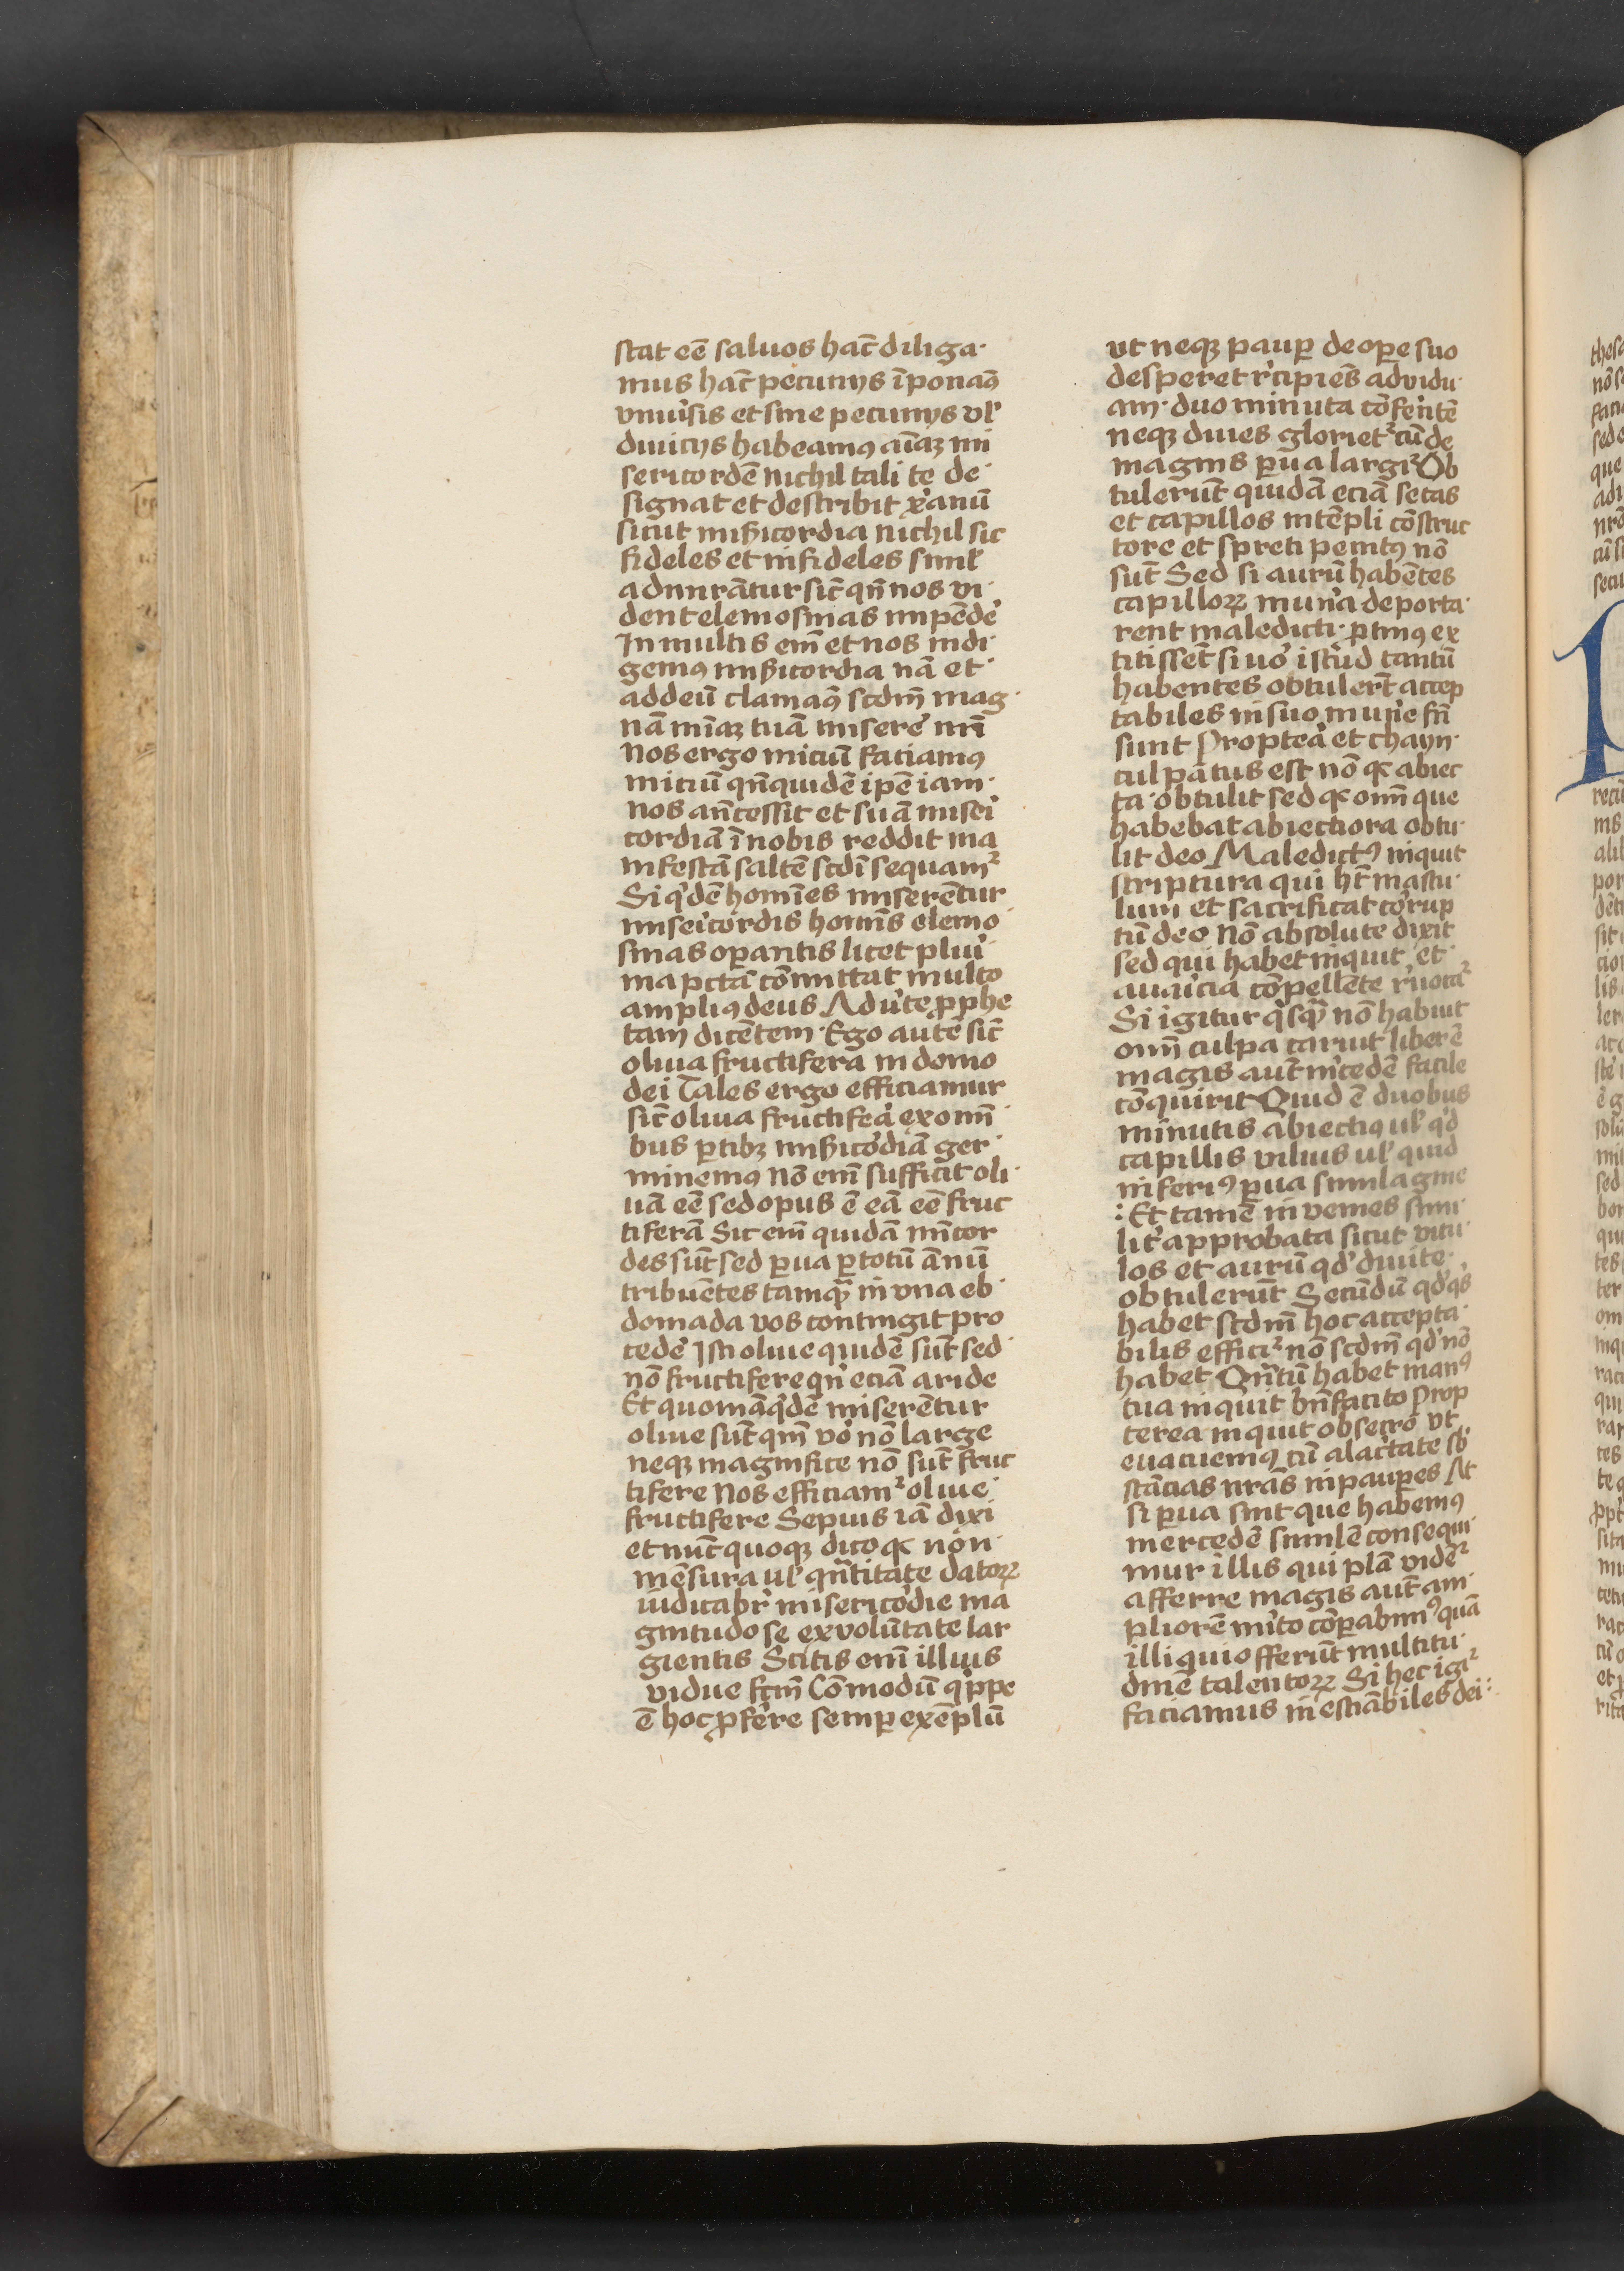 stat eē saluos hac̄ diliga·
mus hac̄ pecunijs īponam9
vniuˀsis et sine pecunijs vl'
diuicijs habeam9 aīaꝫ mi
sericordē nichil tali te de·
signat et describit xˀanū
sicut miẜicordia nichil sic
fideles et infideles siml'
admirātur sic̄ qn̄ nos vi·
dent elemosinas impēdeˀ
In multis em̄ et nos indi·
gem9 miẜicordia nā et·
ad deū clamam9 scdm̄ mag·
nā mīaꝫ tuā misereˀ mī
Nos ergo miciū faciam9
miciū qn̄quidē ipē iam·
nos an̄cessit et suā miseˀi
cordiā ī nobis reddit ma
nifestā saltē scdī sequamᷣ
Si qˀdē homīes miserētur
miseˀicordis homīs elemo·
sinas oꝑantis licet pluˀi
ma pctā cōmittat multo
ampli9 deus Aduˀte ꝓphe
tam dicētem · Ego autē sic̄
oliua fructifera in domo
dei Tales ergo efficiamur
sic̄ oliua fructifeˀa ex om̄i·
bus ꝑtibꝫ miẜicoˀdiā ger·
minem9 Nō em̄ sufficit oli·
uā eē sed opus ē eā eē fruc
tiferā Sic em̄ quidā mīcor
des sūt sed ꝑua ꝑ totū ānū
tribuētes tamqͣ in vna eb·
domada vos contingit pro
cedeˀ Isti oliue quidē sūt sed·
nō fructifere qn̄ eciā aride
Et quoniā qˀdē miserētur
oliue sūt qm̄ voˀ nō large
neqꝫ magnifice nō sūt fruc
tifere Nos efficiamᷣ oliue·
fructifere Sepius iā dixi
et nūc quoqꝫ dico qꝛ non·
mēsura ul' qn̄titate datoꝝ
iudicabrˀ misericoˀdie ma
gnitudo se ex volūtate lar
gientis Scitis em̄ illius
vidue fcm̄ Cōmodū qˀppe
ē hoc ꝓferˀe semꝑ exēplū
vt neqꝫ pauꝑ de oꝑe suo
desperet rˀcipiēs ad vidu·
am · duo minuta cōferˀtē
neqꝫ diues glorietᷣ cū de
magnis ꝑua largiᷣ Ob
tulerūt quidā eciā setas
et capillos in tēpli cōstruc
tore et spreti penit9 nō
sūt Sed si aurū habētes
capilloꝝ munˀa deporta·
rent maledicti · ꝑtin9 ex
titissēt si uoˀ istˀud tantū
habentes obtulert̄ accep
tabiles in suo munˀe fcī
sunt Propteˀa et chayn·
culpātus est nō qꝛ abiec
ta · obtulit sed qꝛ om̄i que
habebat abiectiora obtu·
lit deo Maledict9 inquit
scriptura qui ht̄ mascu·
lum et sacrificat coˀrup
tū deo Nō absolute dixit
sed qui habet inquit et·
auaˀicia cōpellēte rˀuocaᷣ
Si igitur qˀsqͣ nō habuit
om̄i culpa caruit liberē
magis aut̄ mˀcedē facile
cōquirit Quid ē duobus
minutis abiecti9 ul' qˀd
capillis vilius ul' quid
inferi9 ꝑua similagine
: Et tamē invenies simi·
litˀ approbata sicut vitu·
los et aurū qd' diuite·
obtulerūt Secūdū qd' qˀs
habet scdm̄ hoc accepta·
bilis efficiᷣ nō scdm̄ qd' nō
habet Qn̄tū habet man9
tua inquit bn̄facito Prop
terea inquit obsecro vt
euacuem9 cū alacˀtate sb·
stācias nrās in pauꝑes At
si ꝑua sint que habem9
mercedē similē consequi·
mur illis qui plā vidēᷣ
afferre magis aut̄ am·
pliorē mˀito cōꝑabim9 quā
illi qui offerūt multitu·
dinē talentoꝝ Si hec igiᷣ
faciamus inestiābiles dei :